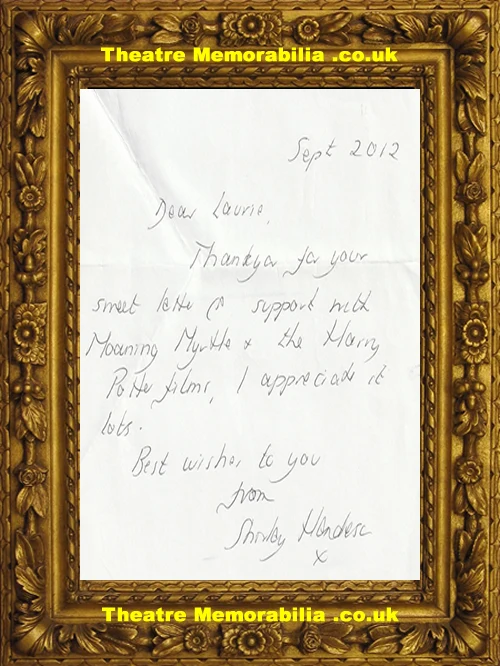 Theatre Memorabilia .co.uk
Sept 2012
Dear Laurie,
Thankyou for your
sweet letter & support with
Moaning Myrtle & the Harry
Potter films, I appreciate it
lots.
Best wishes to you
from
Shirley Henderson
x
Theatre Memorabilia .co.uk